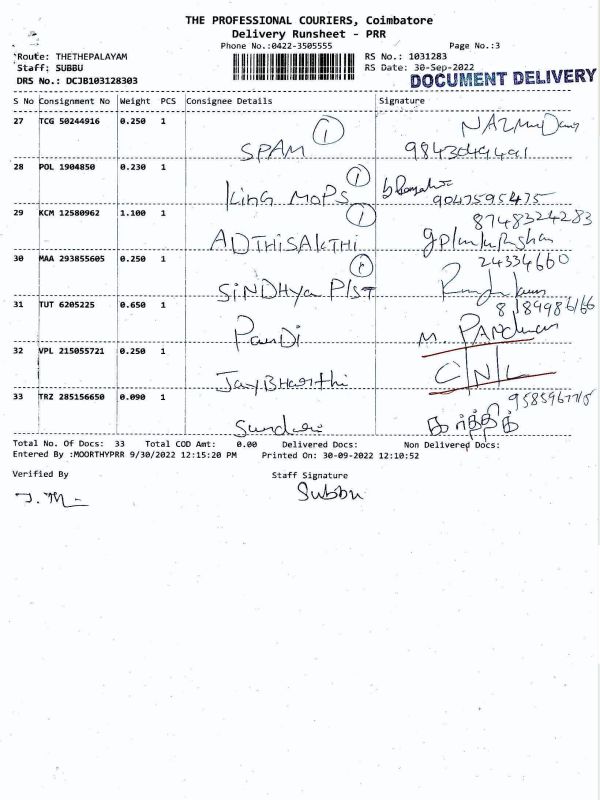 THE PROFESSIONAL COURIERS, Coimbatore
Delivery Runsheet - PRR
Phone No.:0422-3505555 Page No.:3
Route: THETHEPALAYAM RS No.: 1031283
Staff: SUBBU RS Date: 30-Sep-2022
DRS No.: DCJB103128303 DOCUMENT DELIVERY
S No Consignment No Weight PCS Consignee Details Signature
27 TCG 50244916 0.250 1 1
SPAM 9843049491
28 POL 1904850 0.230 1 1
King MOPS 9047595475
29 KCM 12580962 1.100 1 1 8748324283
ADTHISAKTHI
30 MAA 293855605 0.250 1 1 24334660
SiNDHya P/ST
31 TUT 6205225 0.650 1 8189986166
PanDi M.
32 VPL 215055721 0.250 1 C/N/L
JayBHarthi
33 TRZ 285156650 0.090 1
Sundari கார்த்திக்
Total No. Of Docs: 33 Total COD Amt: 0.00 Delivered Docs: Non Delivered Docs:
Entered By :MOORTHYPRR 9/30/2022 12:15:20 PM Printed On: 30-09-2022 12:10:52
Verified By Staff Signature
Subbu